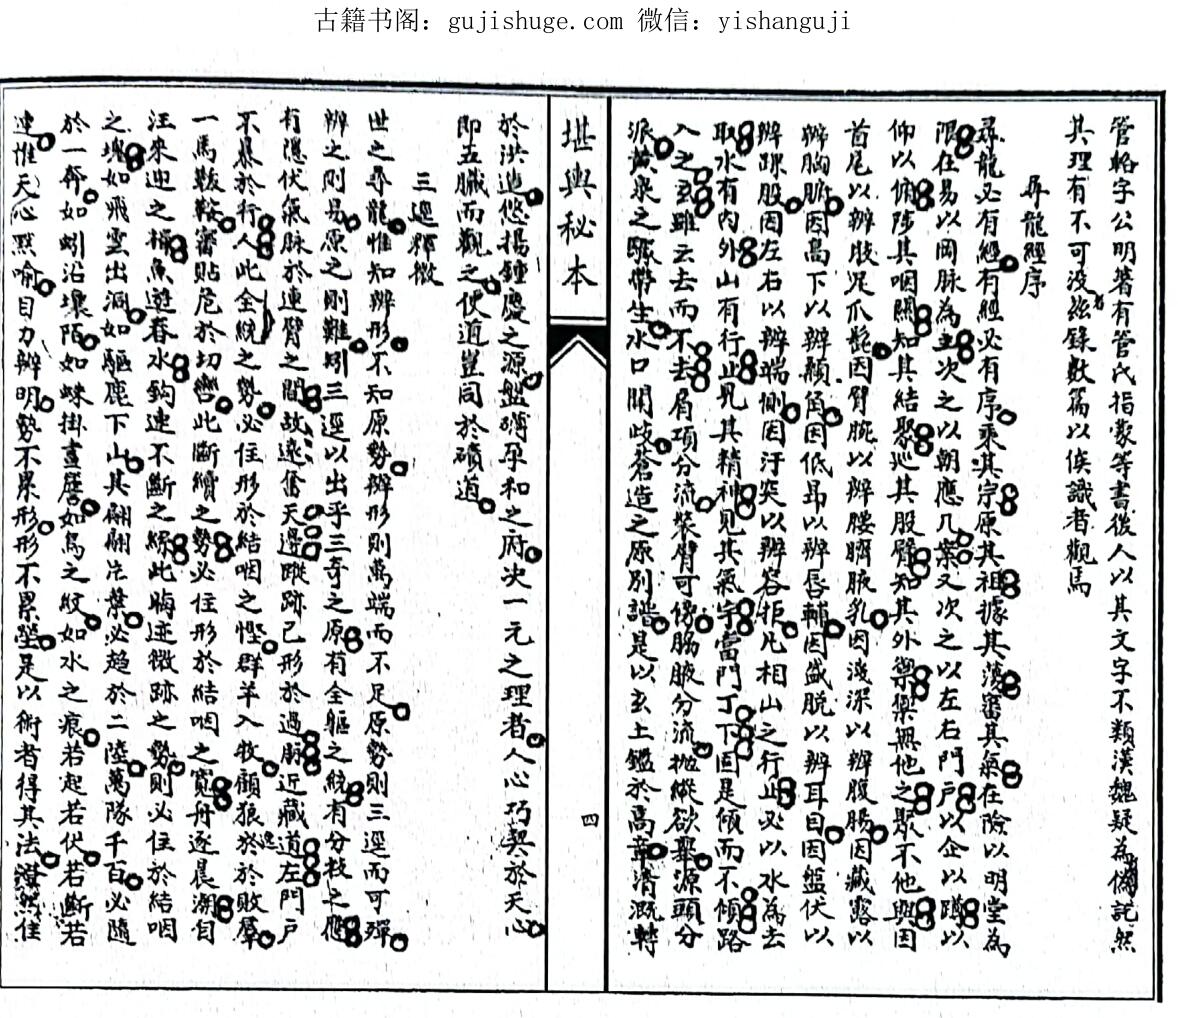 古籍书阁：gujishuge.com 微信：yishanguji
管輅字公明著有管氏指蒙等書後人以其文字不類漢魏疑為偽託然
其理有不可没者錄数篇以俟識者觀焉
尋龍經序
尋龍必有經有經必有序乘其宗原其祖據其蕩審其氣在險以明堂為
限在易以岡脉為主次之以朝應几案又次之以左右門戶以企以蹲以
仰以俯陟其咽關知其結聚巡其股臂知其外禦禦無他之聚不他與因
首尾以辨肢足爪髭因臂腕以辨腰臍腋乳因淺深以辨腹腸因藏露以
辨胸腑因高下以辨顙角因低昂以辨唇輔因盛脱以辨耳目因盤伏以
辨踝股因左右以辨端側因汙突以辨容拒凡相山之行止必以水為去
取水有内外山有行止見其精神見其氣宇當門丁下因是傾而不傾路
入之玄雖云去而不去肩項分流裝臂可傍脇腋分流拋縱欲舉源頭分
派黄泉之驛帶生水口開歧蒼造之原別諧是以玄土鑑於高章清溉轉
堪輿秘本
四
於洪造悠揚鍾慶之源盤礴孕和之府决一元之理者人心巧契於天心
即五臟而觀之使道豈同於磧道
三逕釋微
世之尋龍惟知辨形不知原勢辨形則萬端而不足原勢則三逕而可殫
辨之則易原之則難矧三逕以出乎三奇之原有全軀之統有分枝之應
有隱伏氣脉於連臂之間故遠奮天邊蹤跡已形於過朋近藏道左門戶
不暴於行人此全統之勢必住形於結咽之慳群羊入牧顧狼狘逸於敗羣
一馬鞁鞍審貼危於切轡此斷續之勢必住形於結咽之寬舟逐晨潮自
汪來迎之楠魚遊春水鈎連不斷之綠此晦迹微跡之勢則必住於結咽
之塊如飛雲出洞如驅鹿下山其翩翩片葉必趨於二陸萬隊千百必隨
於一奔如蚓沿壤陌如蛛掛畫曆如鳥之紋如水之痕若起若伏若斷若
連惟天心默喻目力辨明勢不累形形不累塋是以術者得其法渙然住